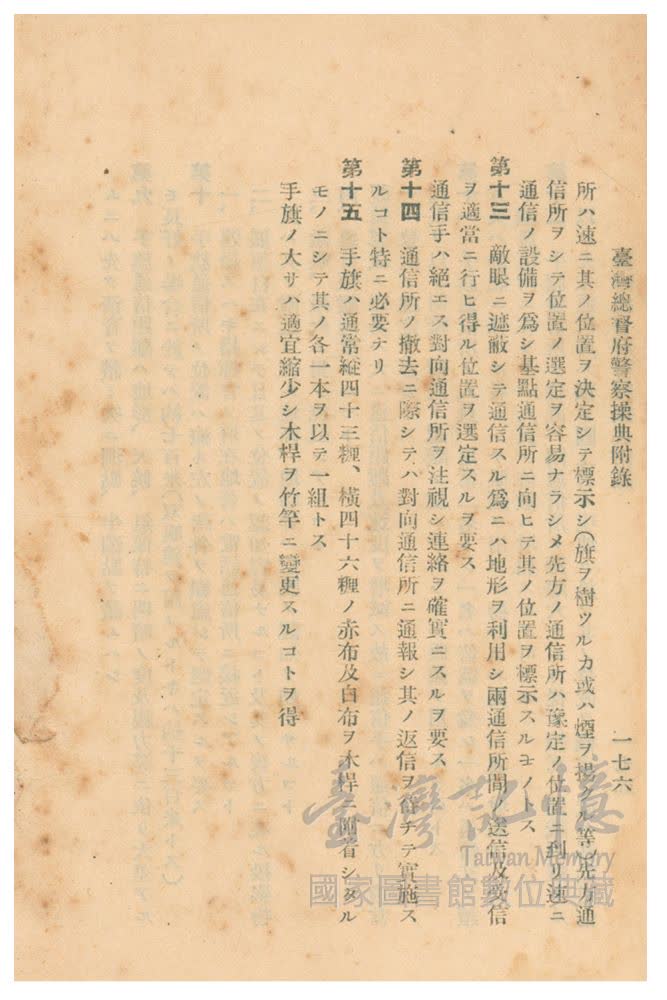 臺灣總督府警察操典附錄
一七六
所ハ速ニ其ノ位置ヲ決定シテ標示シ(旗ヲ樹ツルカ或ハ煙ヲ揚クル等)先方通
信所ヲシテ位置ノ選定ヲ容易ナラシメ先方ノ通信所ハ豫定ノ位置ニ到リ速ニ
通信ノ設備ヲ爲シ基點通信所ニ向ヒテ其ノ位置ヲ標示スルモノトス
第十三 敵眼ニ遮蔽シテ通信スル爲ニハ地形ヲ利用シ兩通信所間ノ送信及受信
ヲ適當ニ行ヒ得ル位置ヲ選定スルヲ要ス
通信手ハ絕エス對向通信所ヲ注視シ連絡ヲ確實ニスルヲ要ス
第十四 通信所ノ撤去ニ際シテハ對向通信所ニ通報シ其ノ返信ヲ待チテ實施ス
ルコト特ニ必要ナリ
第十五 手旗ハ通常縱四十三糎、橫四十六糎ノ赤布及白布ヲ木桿ニ固着シタル
モノニシテ其ノ各一本ヲ以テ一組トス
手旗ノ大サハ適宜縮少シ木桿ヲ竹竿ニ變更スルコトヲ得
臺灣記憶
Taiwan Memory
國家圖書館數位典藏